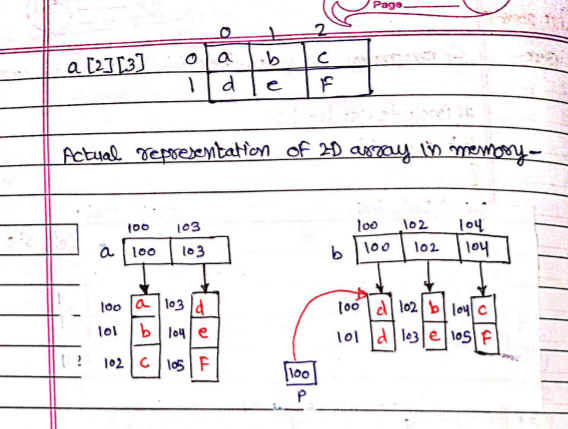 Page
0 1 2
a [2][3] 0 a b c
1 d e F
Actual representation of 2D array in memory-
100 103
a 100 103
100 a 103 d
101 b 104 e
102 c 105 F
100 102 104
b 100 102 104
100 d 102 b 104 c
101 d 103 e 105 F
100
P